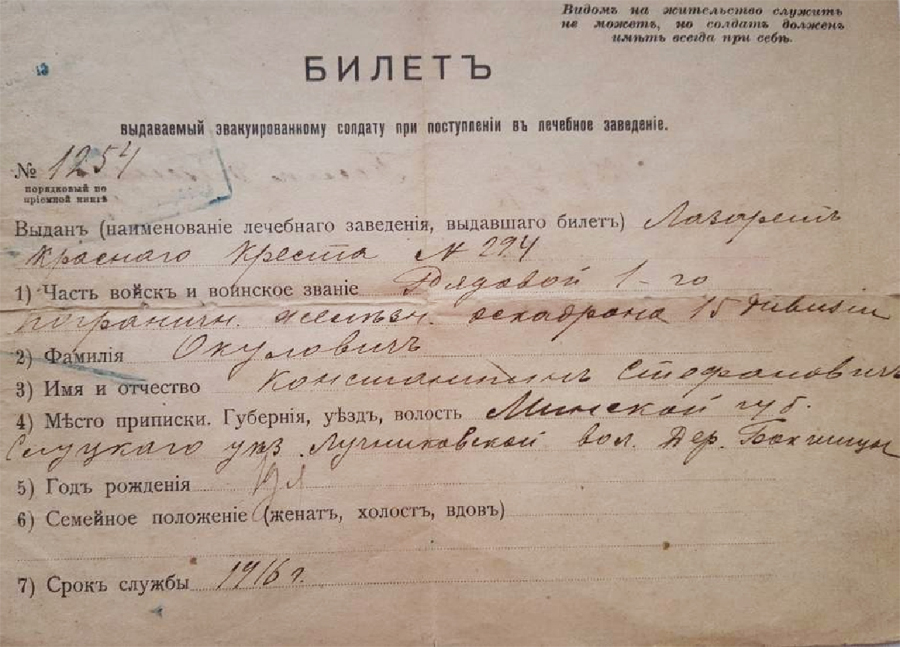 Видомъ на жительство служить
не можетъ, но солдатъ долженъ
имѣть всегда при себѣ.
БИЛЕТЪ
выдаваемый эвакуированному солдату при поступленіи въ лечебное заведеніе.
№ 1254
порядковый по
пріемной книгѣ
Выданъ (наименованіе лечебнаго заведенія, выдавшаго билетъ) Лазаретъ
Краснаго Креста № 294
1) Часть войскъ и воинское званіе Рядовой 1-го
пограничн. эскадрона 15 дивизіи
2) Фамилія Окуловичъ
3) Имя и отчество Константинъ Стефановичъ
4) Мѣсто приписки. Губернія, уѣздъ, волость Минской губ.
Слуцкаго Лучниковской вол. Дер.
5) Годъ рожденія
6) Семейное положеніе (женатъ, холостъ, вдовъ)
7) Срокъ службы 1916 г.